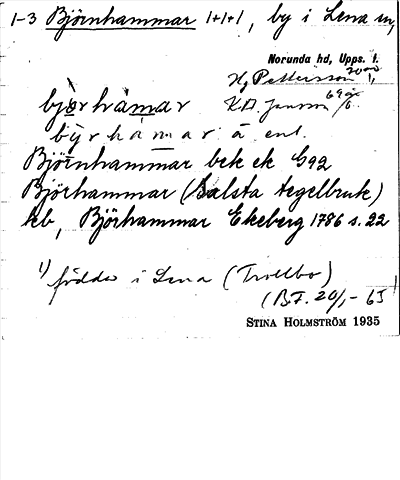 1-3 Björnhammar 1+1+1, by i Lena sn,
Norunda hd, Upps. l.
Hj Pettersson 70 år 1,
K.A. Jansson 69 år
bjørhamar
byrhamar ä. enl.
Björnhammar bek ek G92
Björhammar (Salsta tegelbruk)
kb, Björhammar Ekeberg 1786 s. 22
1) födda i Lena (Trollbo)
(B.F. 20/1 - 65)
STINA HOLMSTRÖM 1935